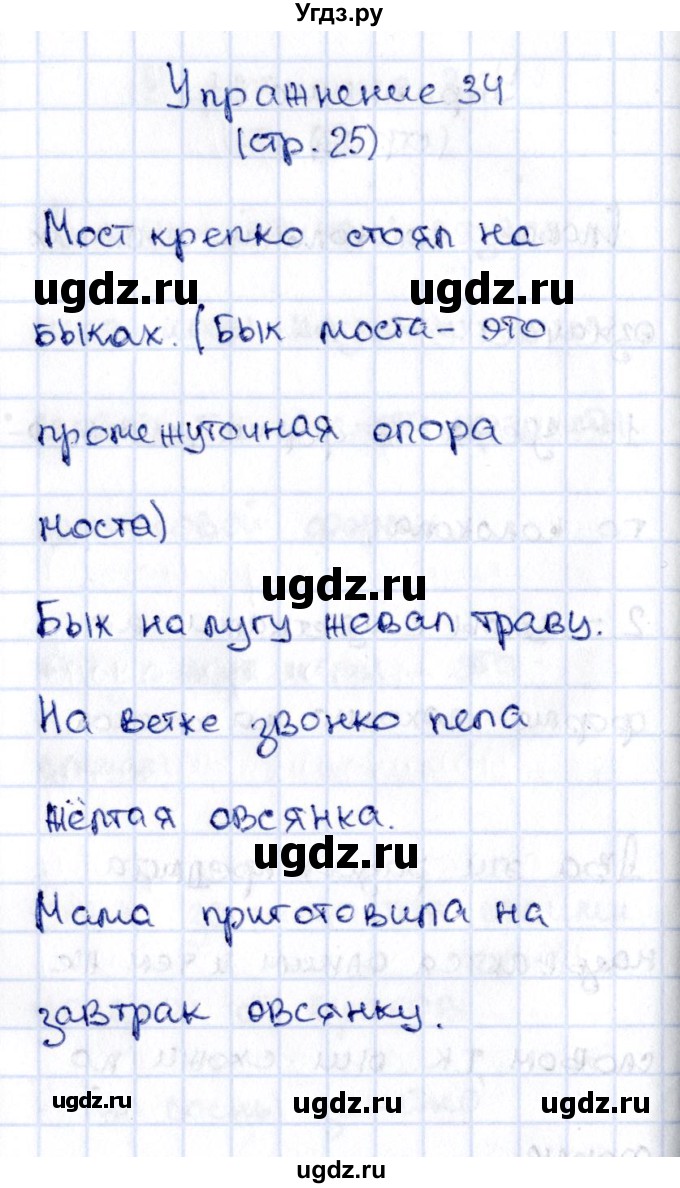 Угдз.ру
Упражнение 34
(стр. 25)
Мост крепко стоял на
ugdz.ru ugdz.ru
быках. (Бык моста - это
промежуточная опора
моста)
ugdz.ru
Бык на лугу жевал траву.
На ветке звонко пела
жёлтая овсянка.
ugdz.ru
Мама приготовила на
завтрак овсянку.
ugdz.ru ugdz.ru ugdz.ru
ugdz.ru